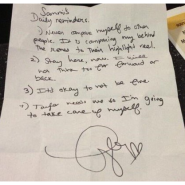 Summit
Daily reminders.
1) Never compare myself to other
people. It is comparing my behind
the scenes to their highlight reel.
2) Stay here, now. I will
not think too far forward or
back.
3) It's okay to not be fine
4) need me so I'm going
to take care of myself.